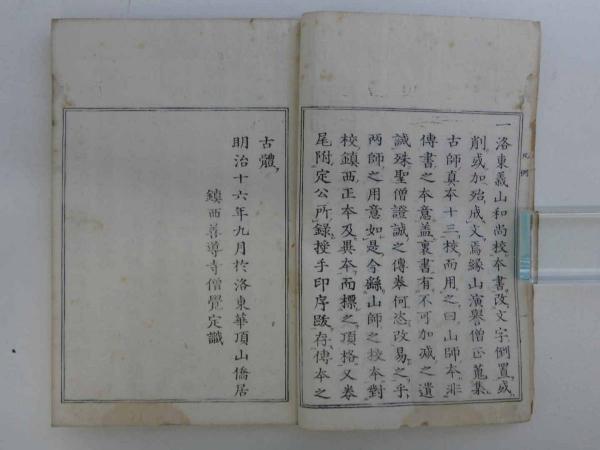 凡例
一洛東義山和尚校本書改文字倒置或
削或加殆成文焉縁山演譽僧正蒐集
古師真本十三校而用之曰山師本非
傳書之本意蓋裏書有不可加減之遺
誡殊聖僧證誠之傳券何恣改易之乎
兩師之用意如是今繇山師之校本對
校鎮西正本及異本而標之頂格又卷
尾附定公所錄授手印序跋存傳本之
古體
明治十六年九月於洛東華頂山僑居
鎮西善導寺僧覺定識